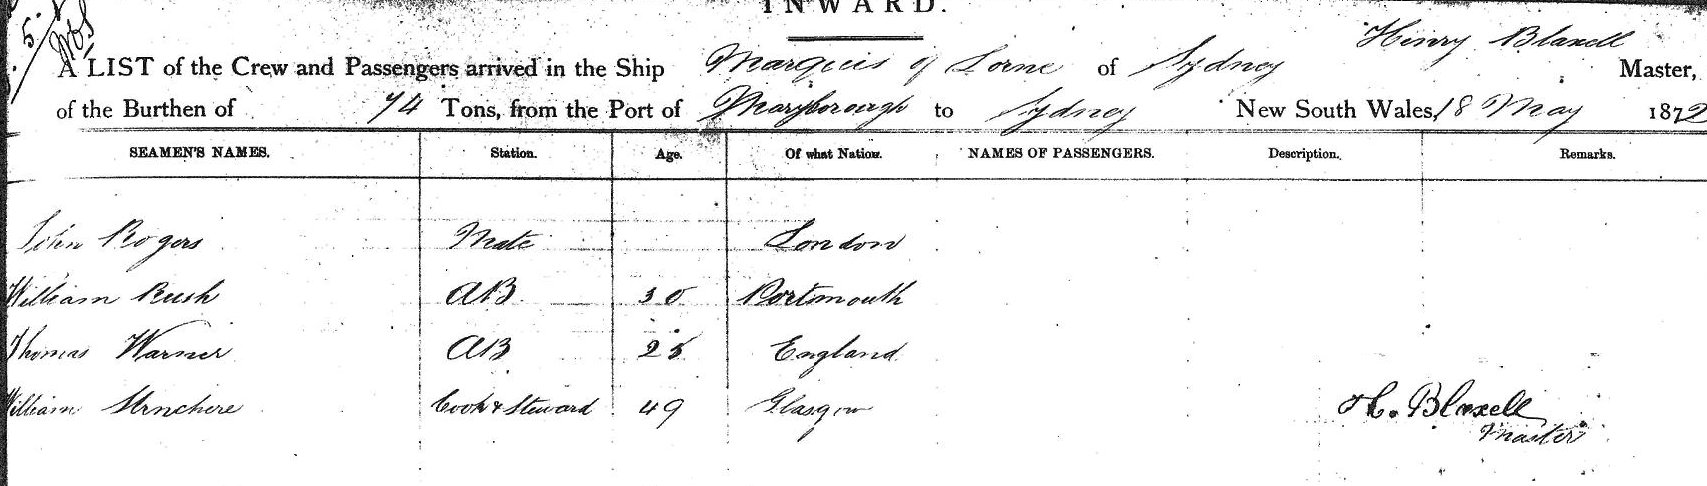 INWARD.
Henry Blaxell
A LIST of the Crew and Passengers arrived in the Ship Marquis of Lorne of Sydney Master,
of the Burthen of 74 Tons, from the Port of Maryborough to Sydney New South Wales, 18 May 1872
SEAMEN'S NAMES. Station. Age. Of what Nation. NAMES OF PASSENGERS. Description. Remarks.
John Rogers Mate London
William Rush AB 30 Portsmouth
Thomas Warner AB 25 England
William Cook & Steward 49 Glasgow
H. Blaxell
Master